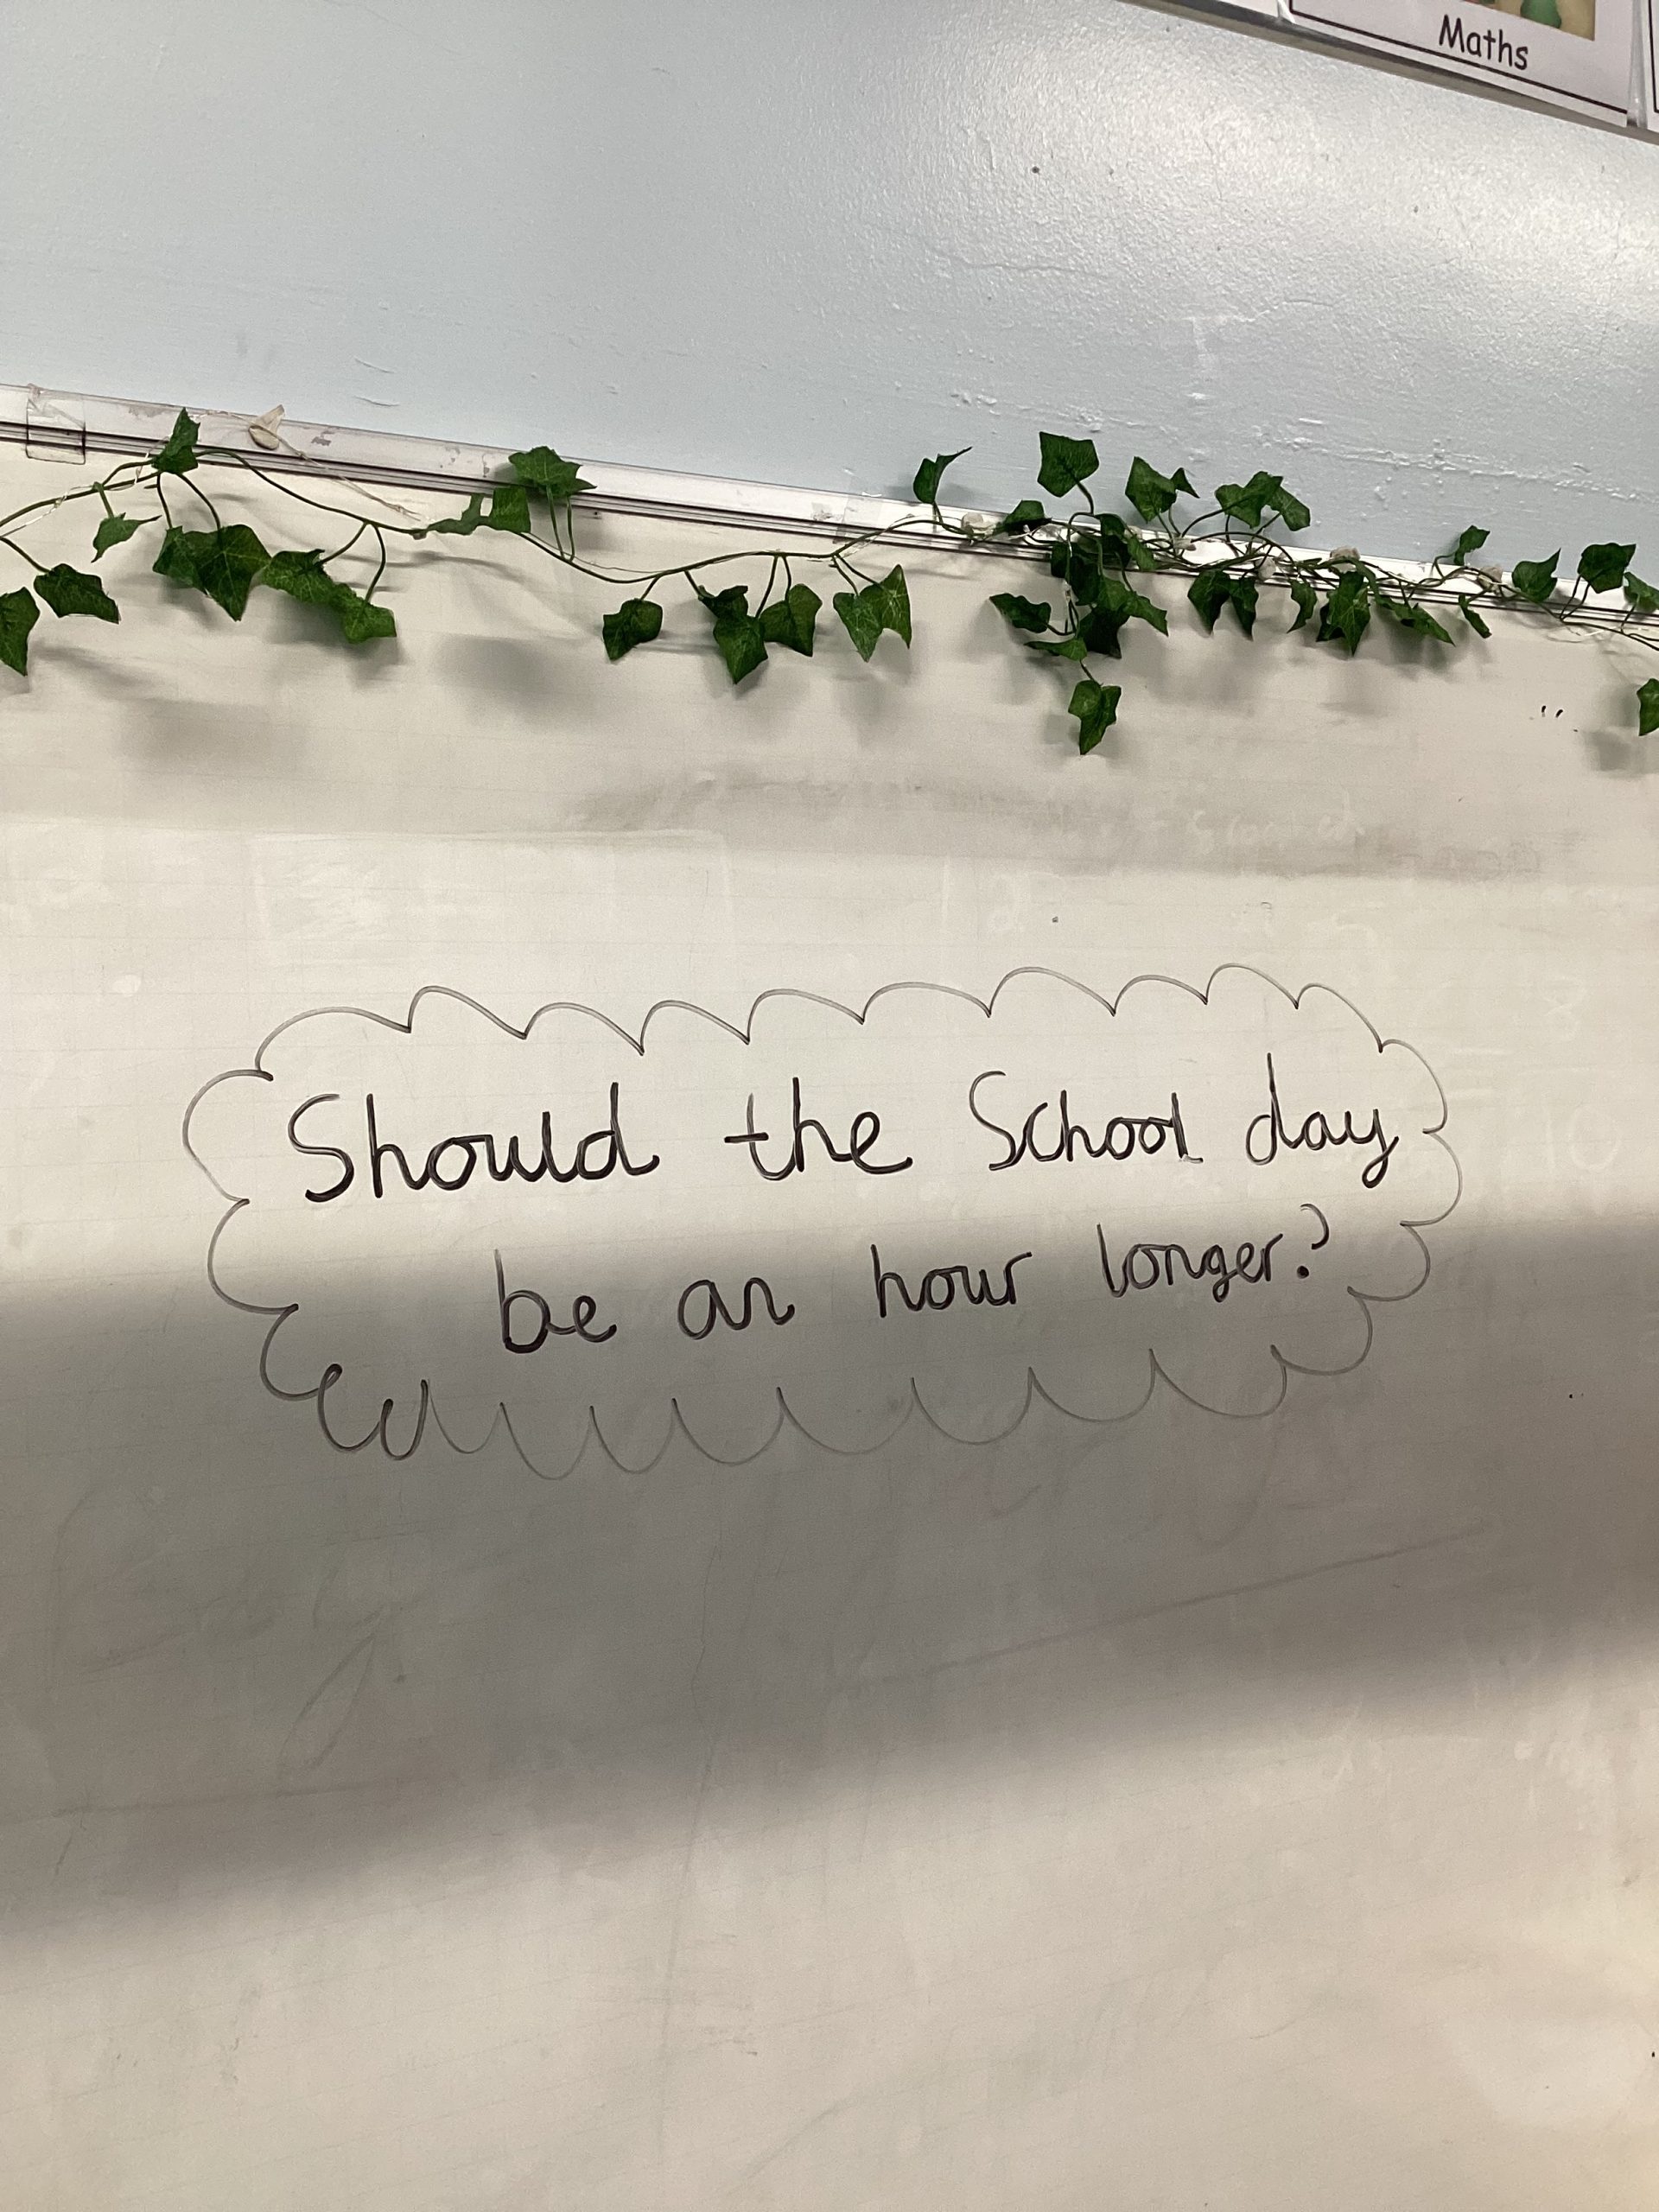 Maths
Should the School day
be an hour longer?